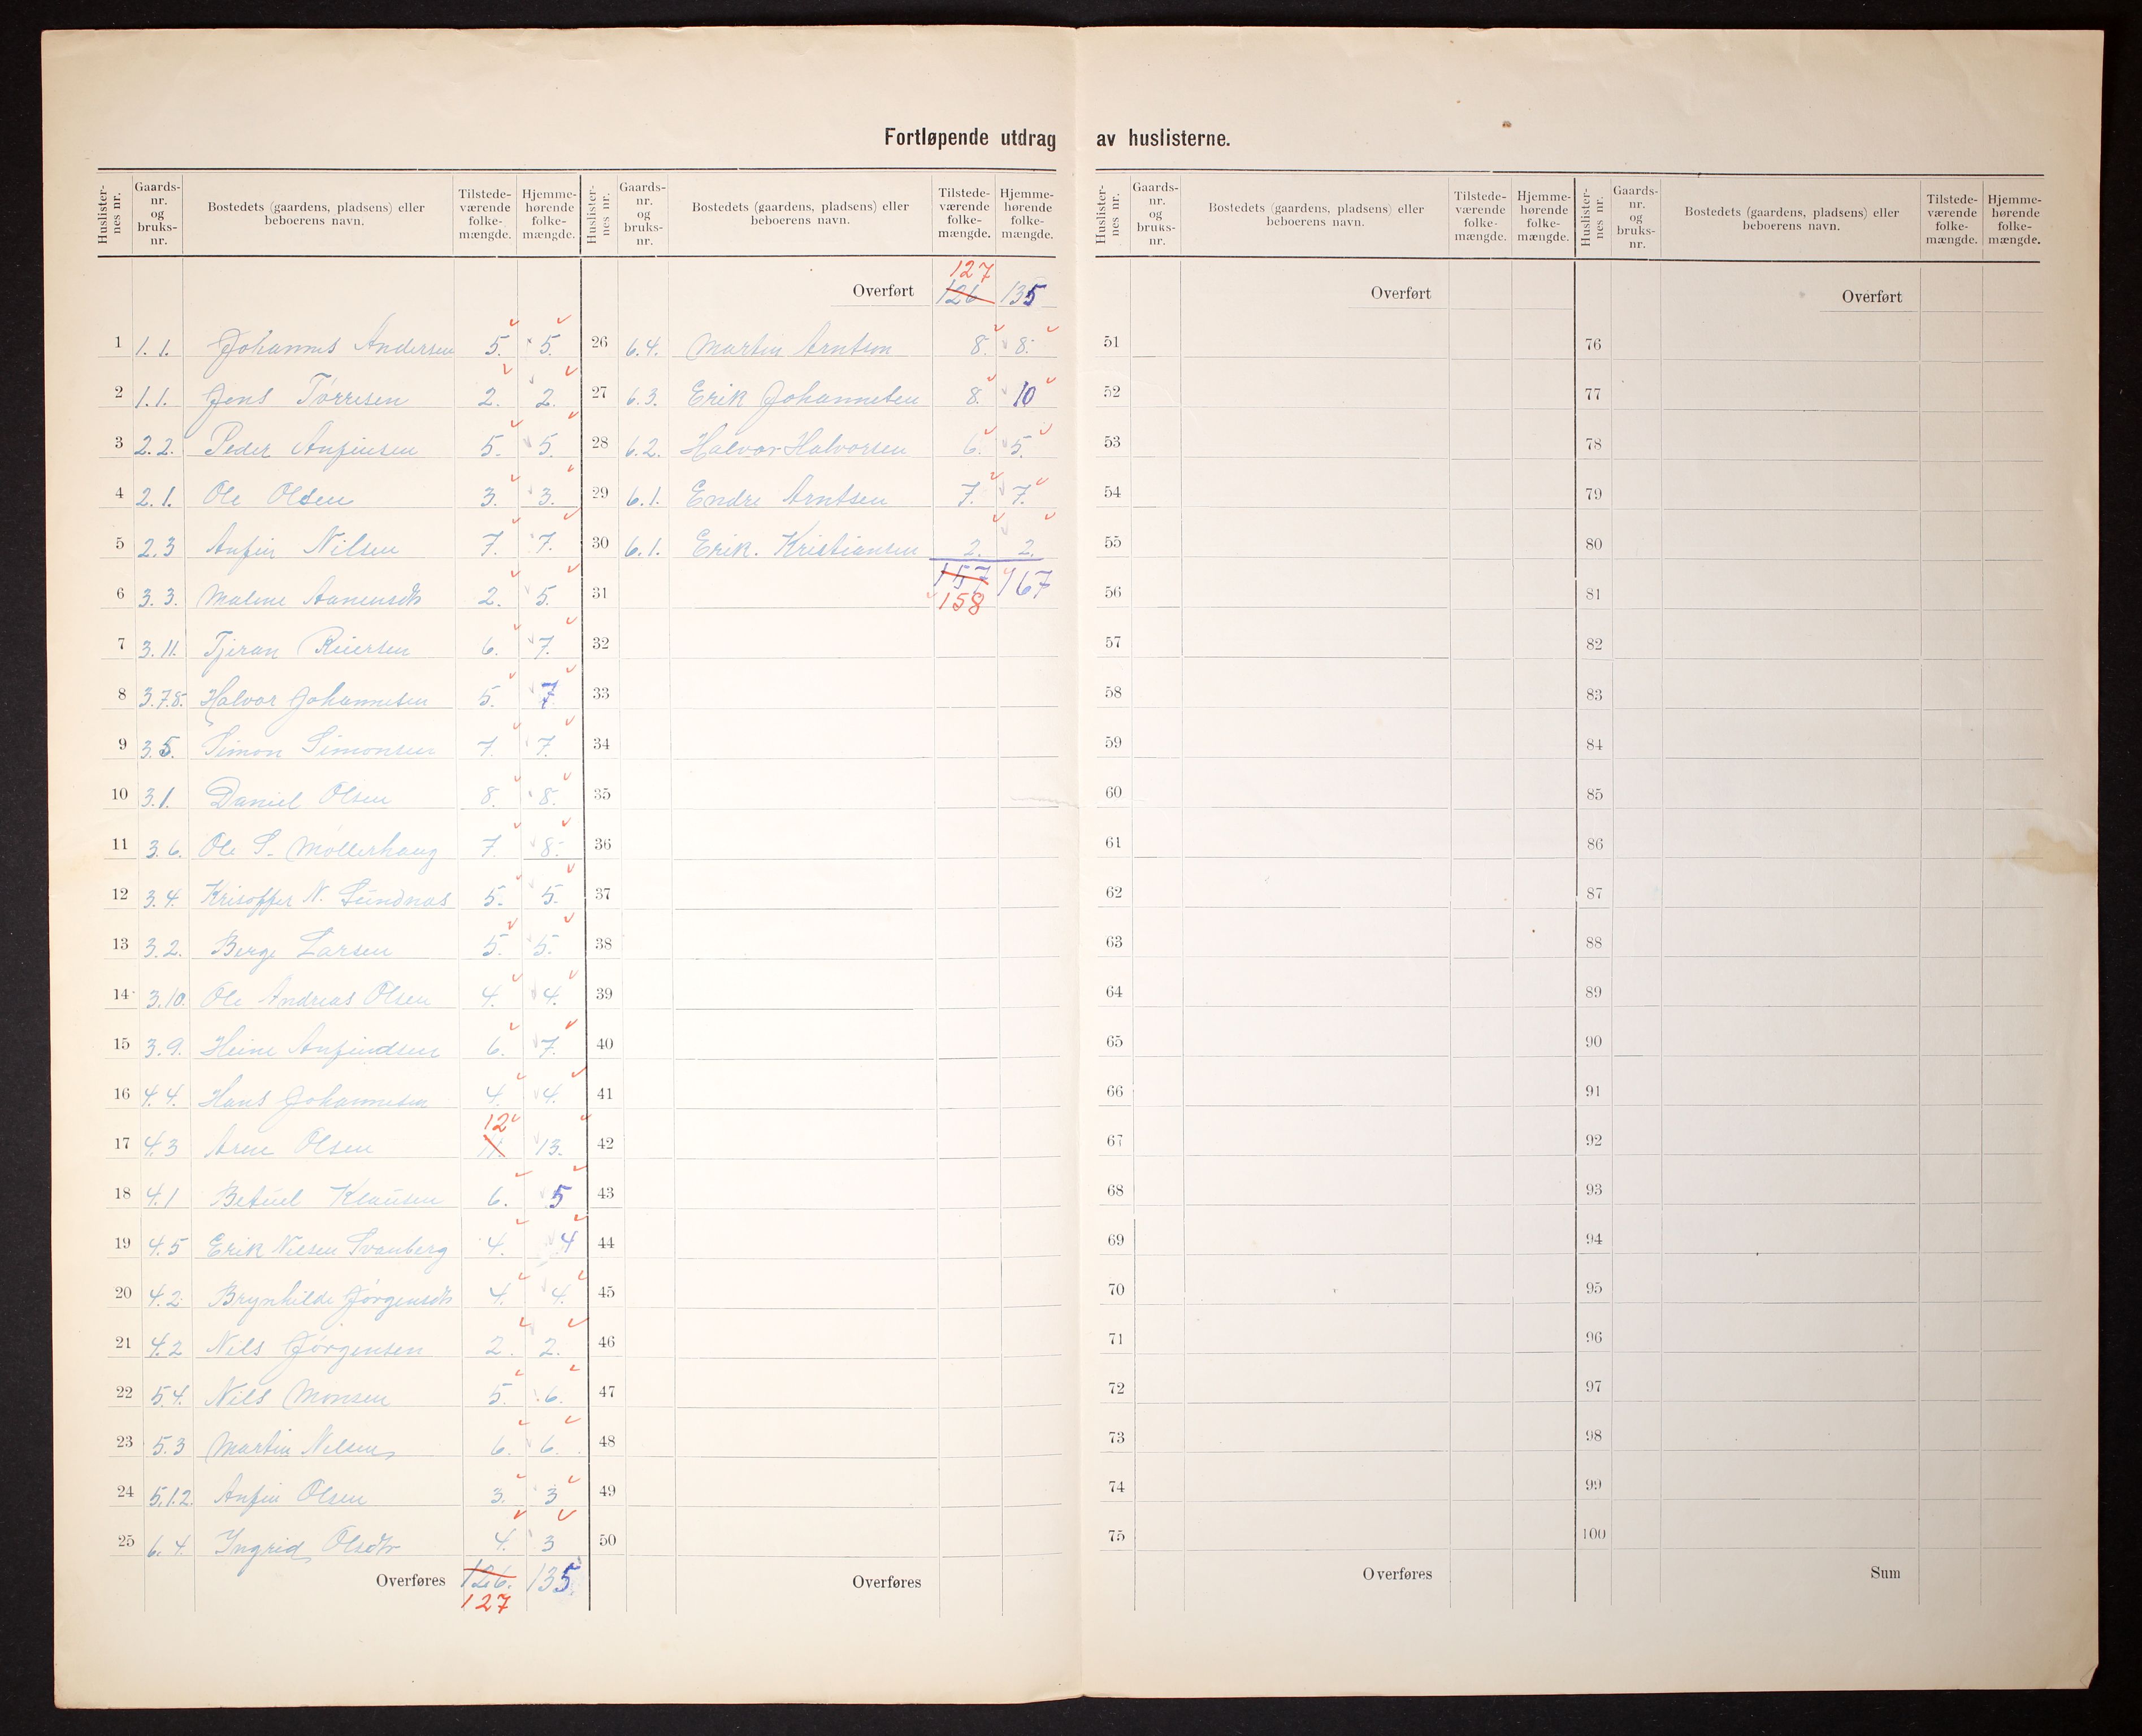 Fortløpende utdrag av huslisterne.
Huslister-nes nr. Gaards-nr. og bruks-nr. Bostedets (gaardens, pladsens) eller beboerens navn. Tilstede-værende folke-mængde. Hjemme-hørende folke-mængde.
1 1.1. Johannes Andersen 5. 5.
2 1.1. Jens Tørresen 2. 2.
3 2.2. Peder Anfinsen 5. 5.
4 2.1. Ole Olsen 3. 3.
5 2.3 Anfin Nilsen 7. 7.
6 3.3. Malene Aanensdtr 2. 5.
7 3.11. Tjeran Reiersen 6. 7.
8 3.7.8. Halvor Johannesen 5. 7
9 3.5. Simon Simonsen 7. 7.
10 3.1. Daniel Olsen 8. 8.
11 3.6. Ole S. Møllerhaug 7. 8.
12 3.4. Krisoffer N. Sundnas 5. 5.
13 3.2. Berge Larsen 5. 5.
14 3.10. Ole Andreas Olsen 4. 4.
15 3.9. Heine Anfindsen 6. 7.
16 4.4. Hans Johannesen 4. 4.
12
17 4.3 Arne Olsen 11 13.
18 4.1 Betuel Klausen 6. 5
19 4.5 Erik Nilsen Svanberg 4. 4
20 4.2 Brynhilde Jørgensdtr 4. 4.
21 4.2 Nils Jørgensen 2. 2.
22 5.4. Nils Monsen 5. 6.
23 5.3 Martin Nilsen 6. 6.
24 5.1.2. Anfin Olsen 3. 3
25 6.4. Ingrid Olsdtr 4. 3
Overføres 126. 135.
127
Huslister-nes nr. Gaards-nr. og bruks-nr. Bostedets (gaardens, pladsens) eller beboerens navn. Tilstede-værende folke-mængde. Hjemme-hørende folke-mængde.
127
Overført 126 135
26 6.4. Martin Arntsen 8. 8.
27 6.3. Erik Johannesen 8. 10
28 6.2. Halvor Halvorsen 6. 5.
29 6.1. Endre Arntsen 7. 7.
30 6.1. Erik. Kristiansen 2. 2.
31 157 167
158
32
33
34
35
36
37
38
39
40
41
42
43
44
45
46
47
48
49
50
Overføres
Huslister-nes nr. Gaards-nr. og bruks-nr. Bostedets (gaardens, pladsens) eller beboerens navn. Tilstede-værende folke-mængde. Hjemme-hørende folke-mængde.
Overført
51
52
53
54
55
56
57
58
59
60
61
62
63
64
65
66
67
68
69
70
71
72
73
74
75
Overføres
Huslister-nes nr. Gaards-nr. og bruks-nr. Bostedets (gaardens, pladsens) eller beboerens navn. Tilstede-værende folke-mængde. Hjemme-hørende folke-mængde.
Overført
76
77
78
79
80
81
82
83
84
85
86
87
88
89
90
91
92
93
94
95
96
97
98
99
100
Sum